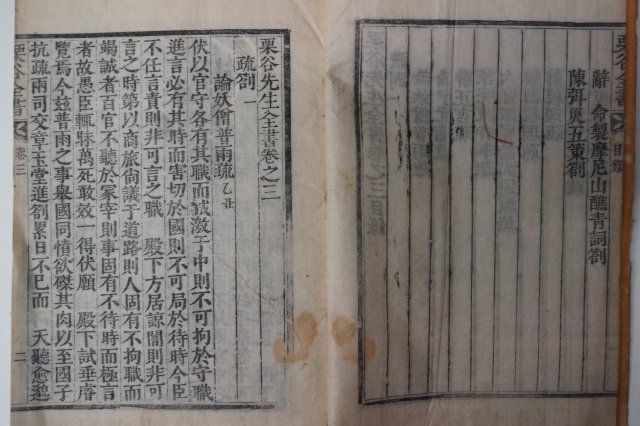 辭 命製摩尼山醮青詞劄
陳弭災五策劄
栗谷全書 目錄
栗谷先生全書卷之三
疏劄一
論妖僧普雨疏 乙丑
伏以官守各有其職而誠激于中則不可拘於守職
進言必有其時而害切於國則不可局於待時今臣
不任言責則非可言之職 殿下方居諒闇則非可
言之時第以商旅尙議于道路則人固有不拘職而
竭誠者百官不聽於冢宰則事固有不待時而極言
者故愚臣輒昧萬死敢效一得伏願 殿下試垂睿
覽焉今玆普雨之事舉國同憤欲磔其肉以至國子
抗疏兩司交章玉堂進劄累日不已而 天聽愈邈
栗谷全書 卷三 二